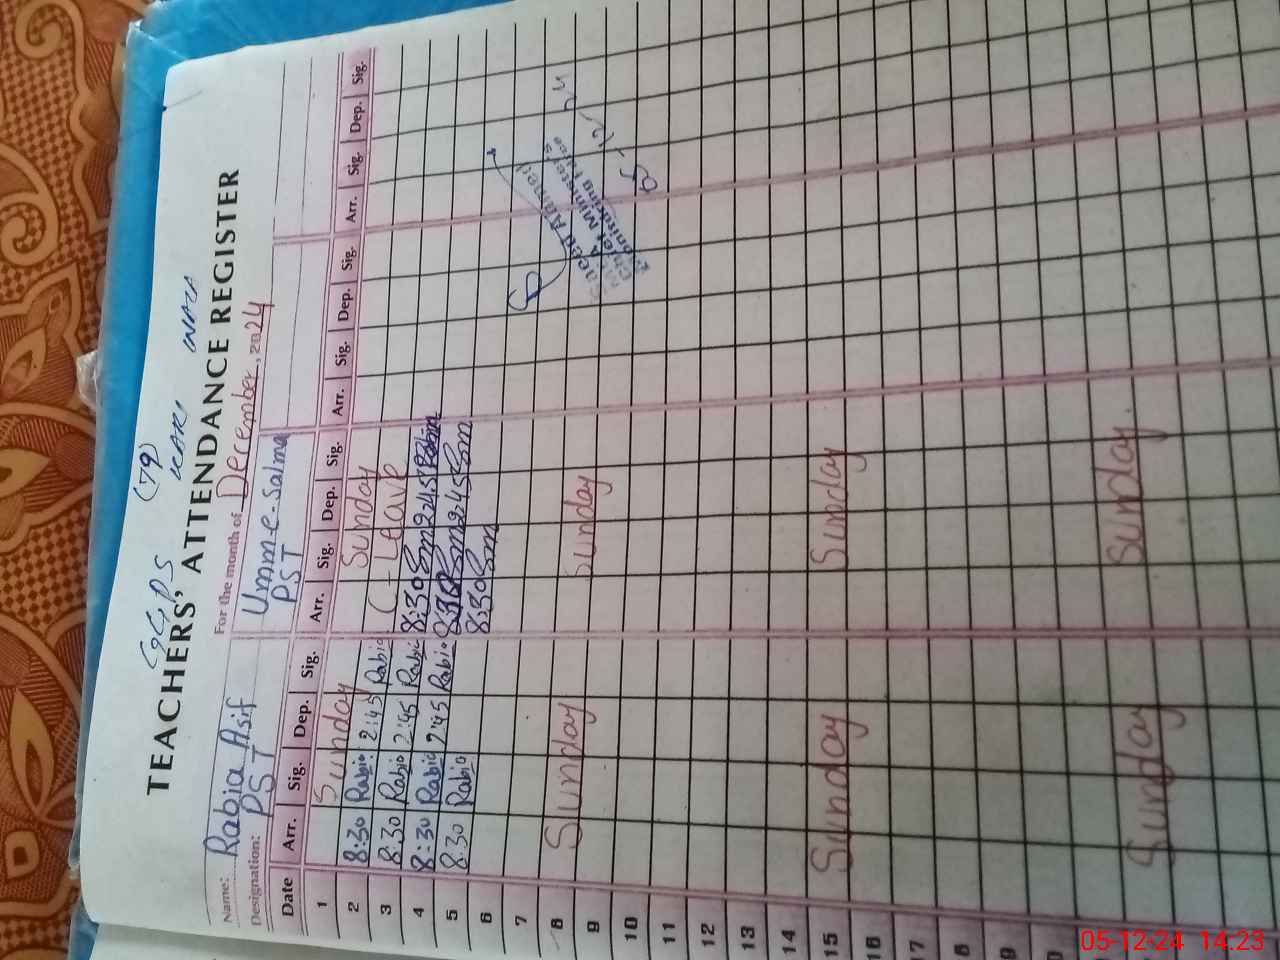 GGPS (79)
TEACHERS' ATTENDANCE REGISTER
For the month of December, 2024
Name: Rabia Asif Umm-e-Salma
Designation: PST PST
Date Arr. Sig. Dep. Sig. Arr. Sig. Dep. Sig. Arr. Sig. Dep. Sig. Arr. Sig. Dep. Sig.
1 Sunday Sunday
2 8:30 Rabia 2:45 Rabia C-Leave
3 8:30 Rabia 2:45 Rabia 8:30 Sm 2:45
4 8:30 Rabia 2:45 Rabia Sm 2:45 Sm
5 8:30 Rabia 8:30 Sm
6
7
8 Sunday Sunday
9
10
11
12
13
14
15 Sunday Sunday
16
17
Sunday Sunday
Ahmed
Chief Minister's
Monitoring Force
05-12-24
05-12-24 14:23